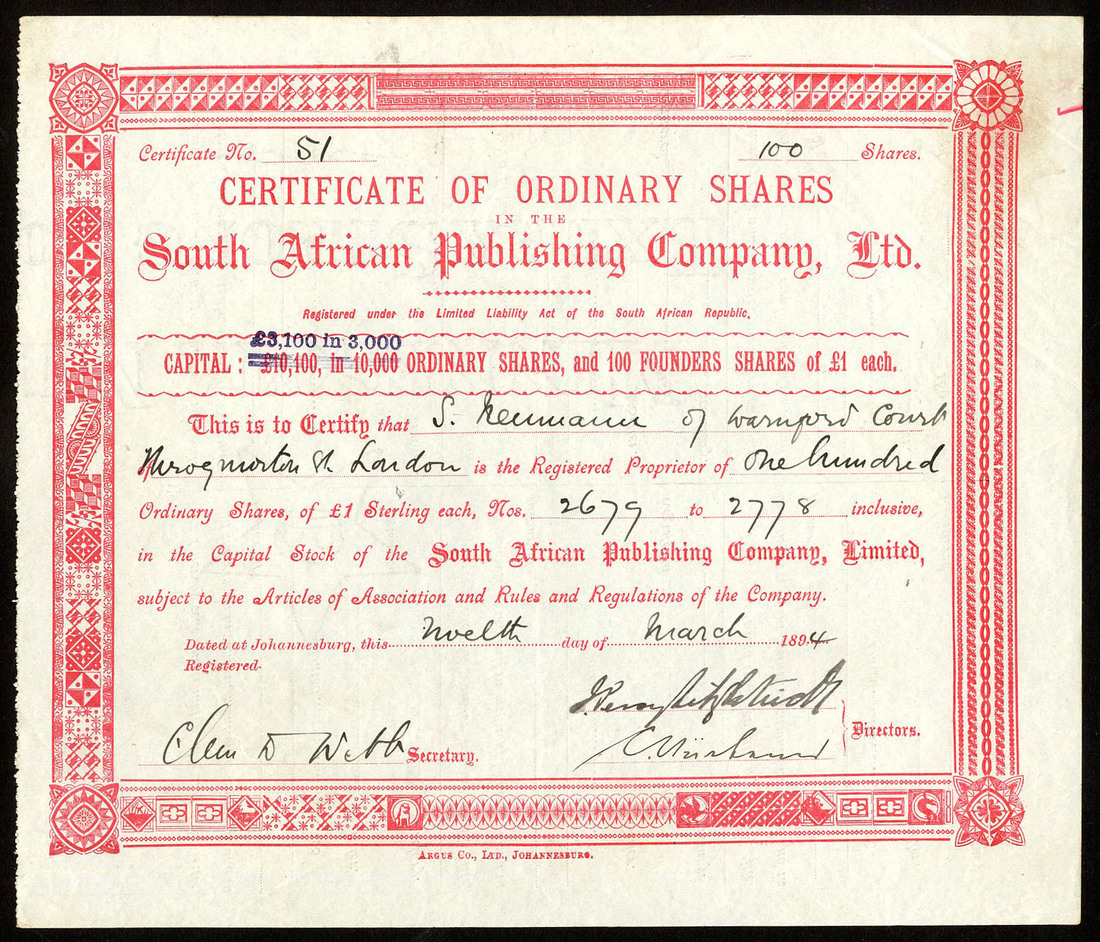 Certificate No. 51 100 Shares.
CERTIFICATE OF ORDINARY SHARES
IN THE
South African Publishing Company, Ltd.
Registered under the Limited Liability Act of the South African Republic.
£3,100 in 3,000
CAPITAL: £10,100, in 10,000 ORDINARY SHARES, and 100 FOUNDERS SHARES of £1 each.
This is to Certify that S. Neumann of Warnford Court
Throgmorton St. London is the Registered Proprietor of One hundred
Ordinary Shares, of £1 Sterling each, Nos. 2679 to 2778 inclusive,
in the Capital Stock of the South African Publishing Company, Limited,
subject to the Articles of Association and Rules and Regulations of the Company.
Dated at Johannesburg, this twelth day of March 1894
Registered.
Clem D Webb Secretary.
Directors.
ARGUS CO., LTD., JOHANNESBURG.